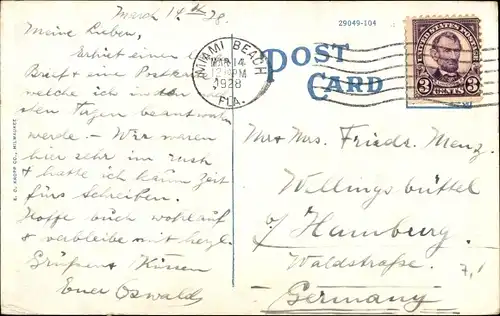 March 14th 28.
Meine Lieben,
Erhielt einen
Brief & eine Postkarte
welche ich in den
sten Tagen beantworten
werde. - Wir waren
hier sehr im rush
& hatte ich kaum Zeit
fürs Schreiben.
Hoffe Euch wohlauf
& verbleibe mit herzl.
Grüssen & Küssen
Euer Oswald
E. C. KROPP CO., MILWAUKEE
29049-104
POST
CARD
MIAMI BEACH
MAR 14
12 PM
1928
FLA.
UNITED STATES POSTAGE
LINCOLN
3 CENTS 3
Mr & Mrs. Friedr. Menz.
Willingsbüttel
b/ Hamburg.
Waldstraße.
7,1
Germany